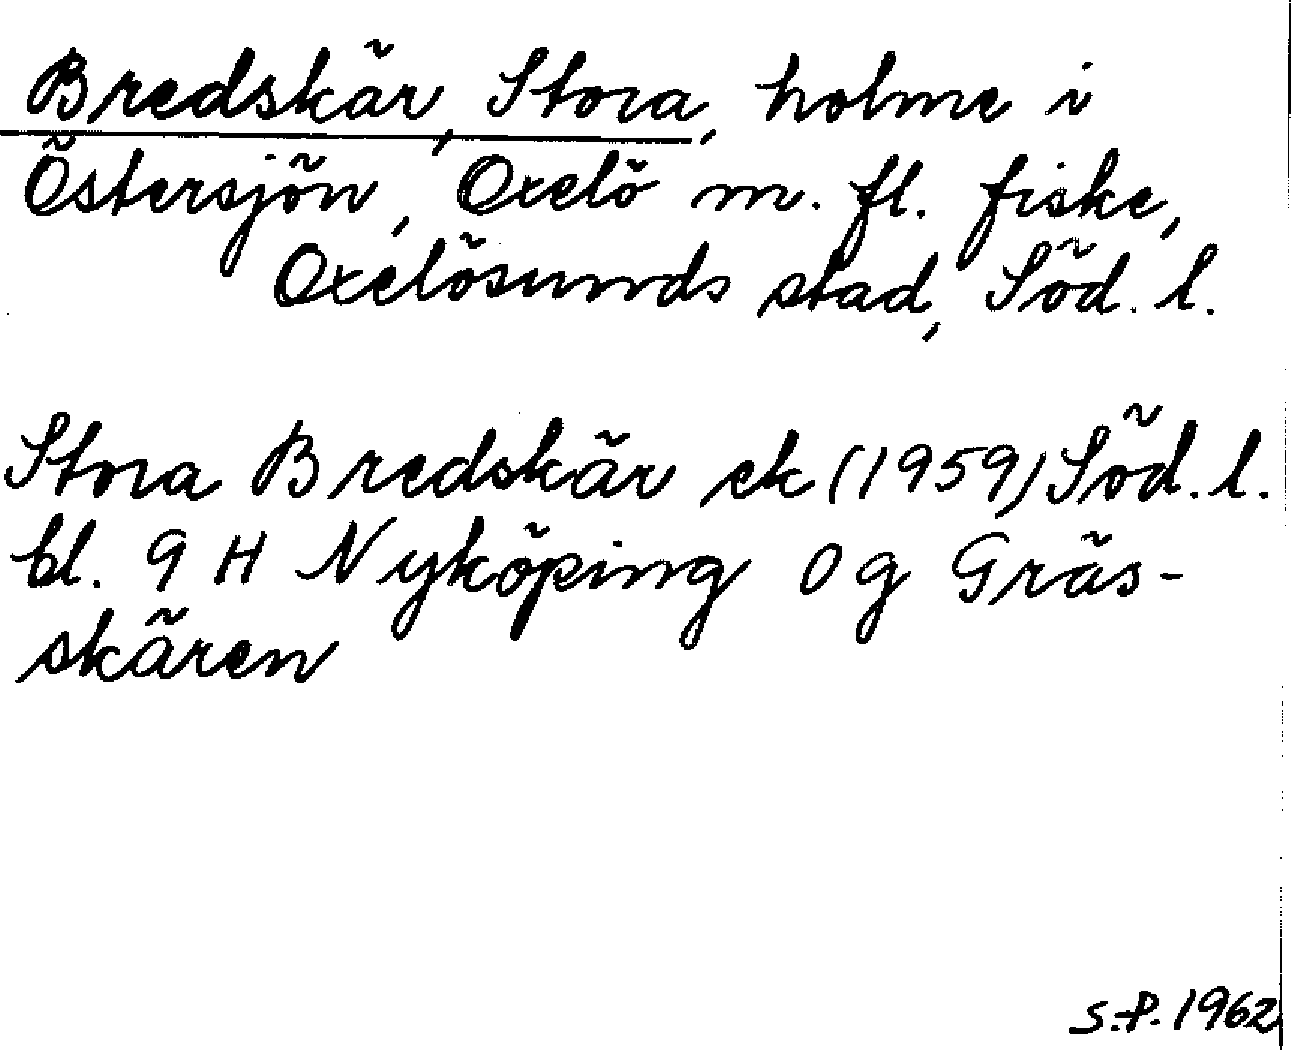 Bredskär, Stora, holme i
Östersjön, Oxelö m. fl. fiske,
Oxelösunds stad, Söd. l.
Stora Bredskär ek (1959) Söd. l.
bl. 9 H Nyköping 0 g Gräs-
skären
S.P. 1962